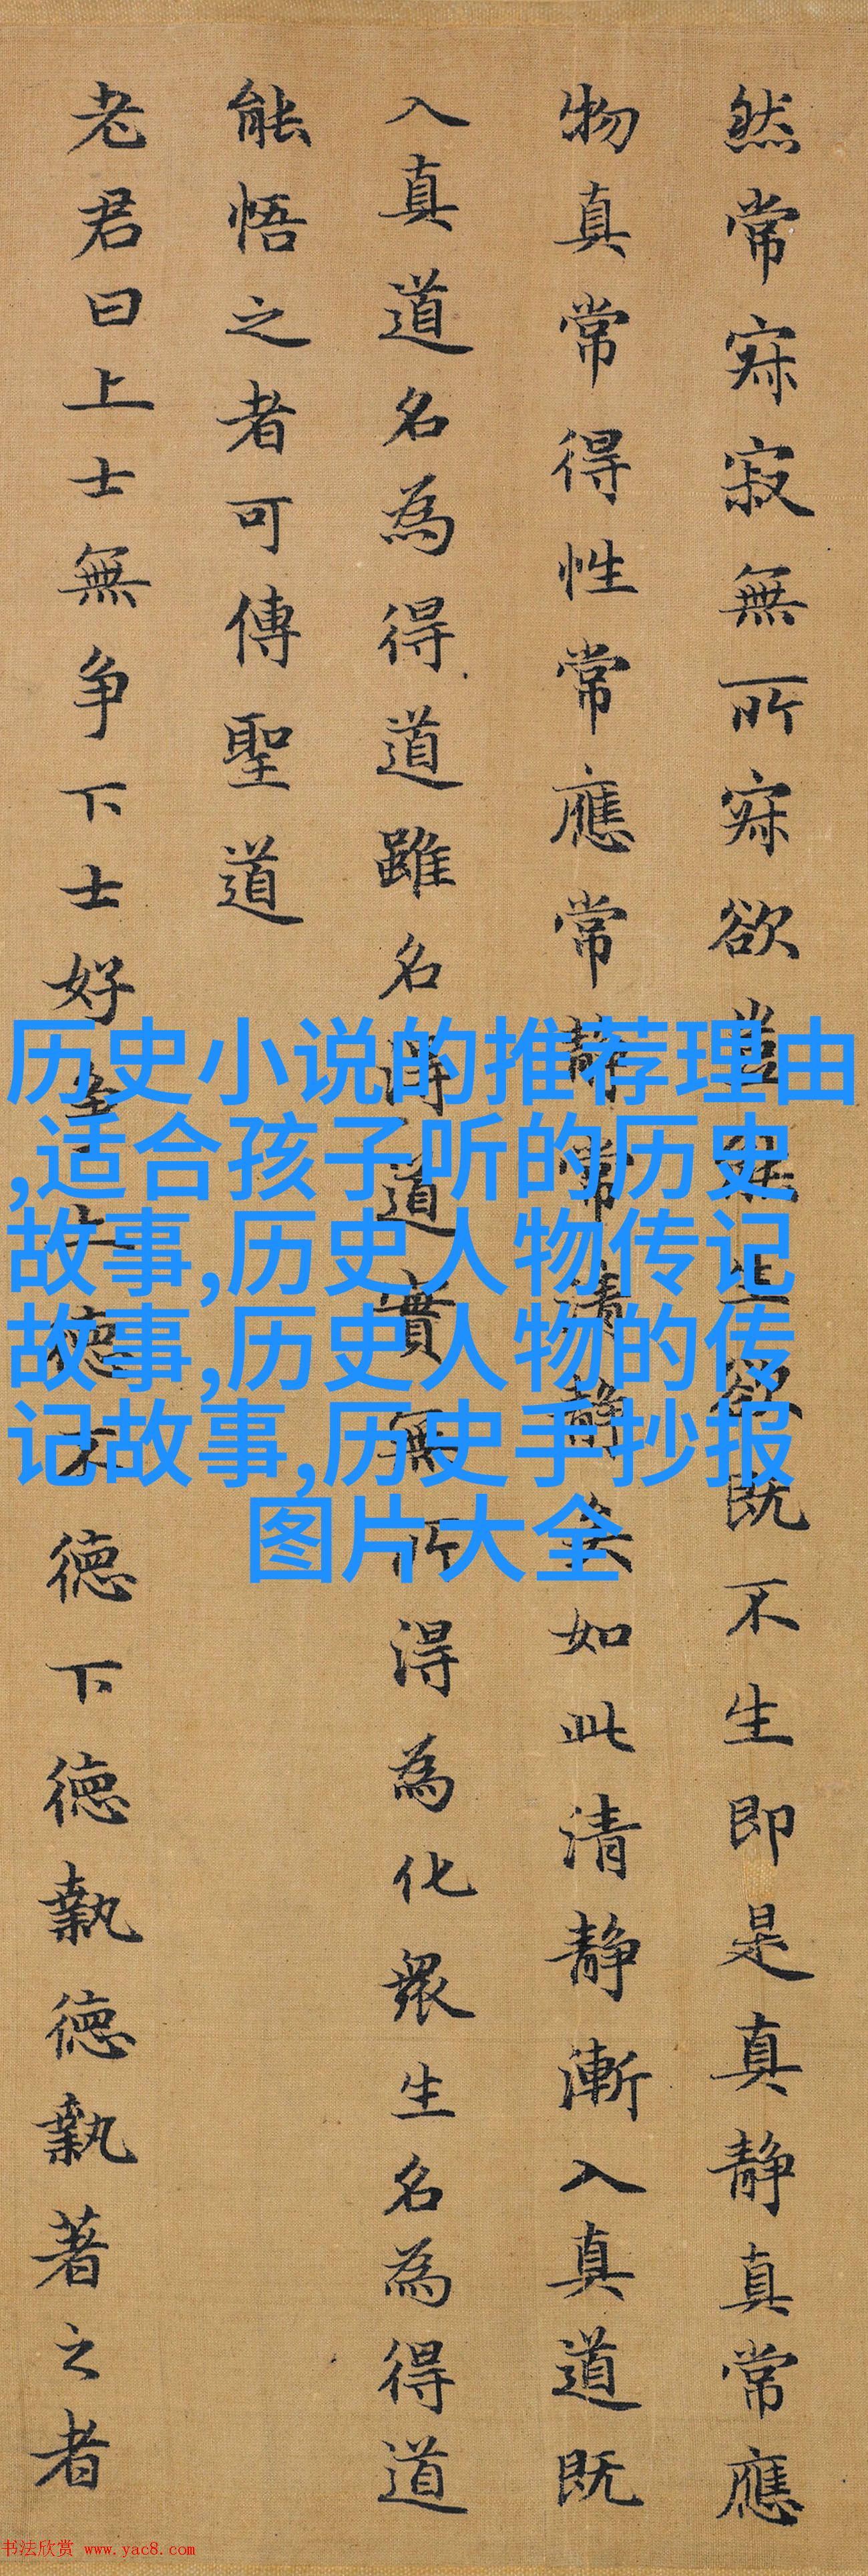 然常寂寂無所寂欲豈能生欲既不生即是真静真常應
物真常得性常應常静常清静矣如此清静漸入真道既
入真道名為得道雖名得道實無所得為化衆生名為得道
能悟之者可傳聖道
老君曰上士無争下士好争上德不德下德執德執著之者
历史小说的推荐理由
,适合孩子听的历史
故事,历史人物传记
故事,历史人物的传
记故事,历史手抄报
图片大全
书法欣赏 www.yac8.com